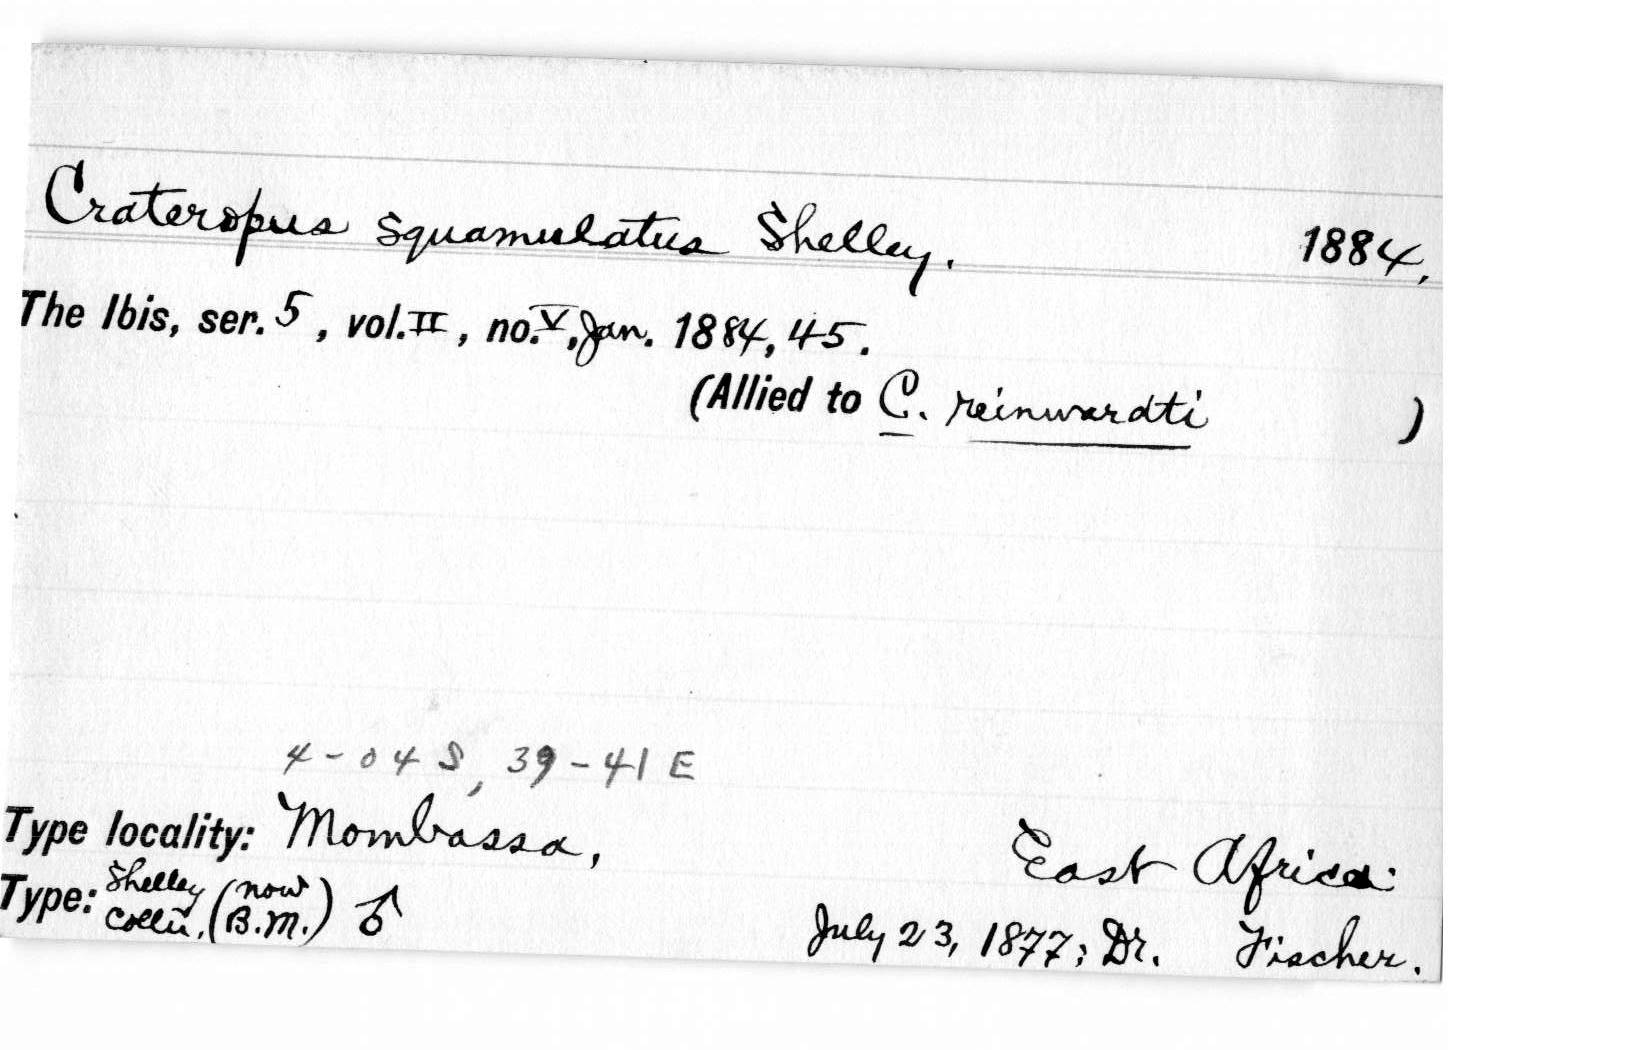 Crateropus squamulatus Shelley. 1884.
The Ibis, ser. 5, vol. II, no. V, Jan. 1884, 45.
(Allied to C. reinwardti )
4-04 S, 39-41 E
Type locality: Mombassa, East Africa.
Type: Shelley Colln. (now B.M.) ♂ July 23, 1877; Dr. Fischer.